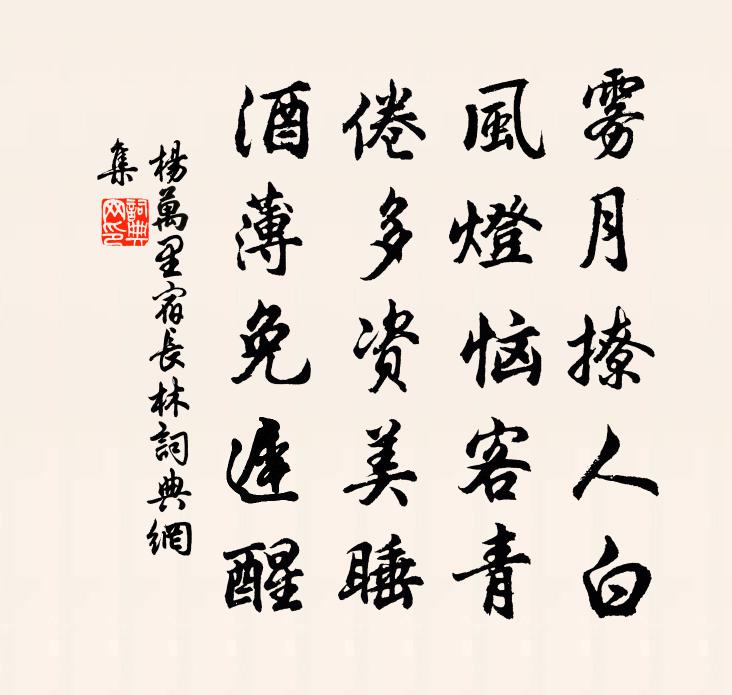 雾月撩人白
風燈恼客青
倦多资美睡
酒薄免遲醒
楊萬里宿長林詞典網
集
詞典
网印